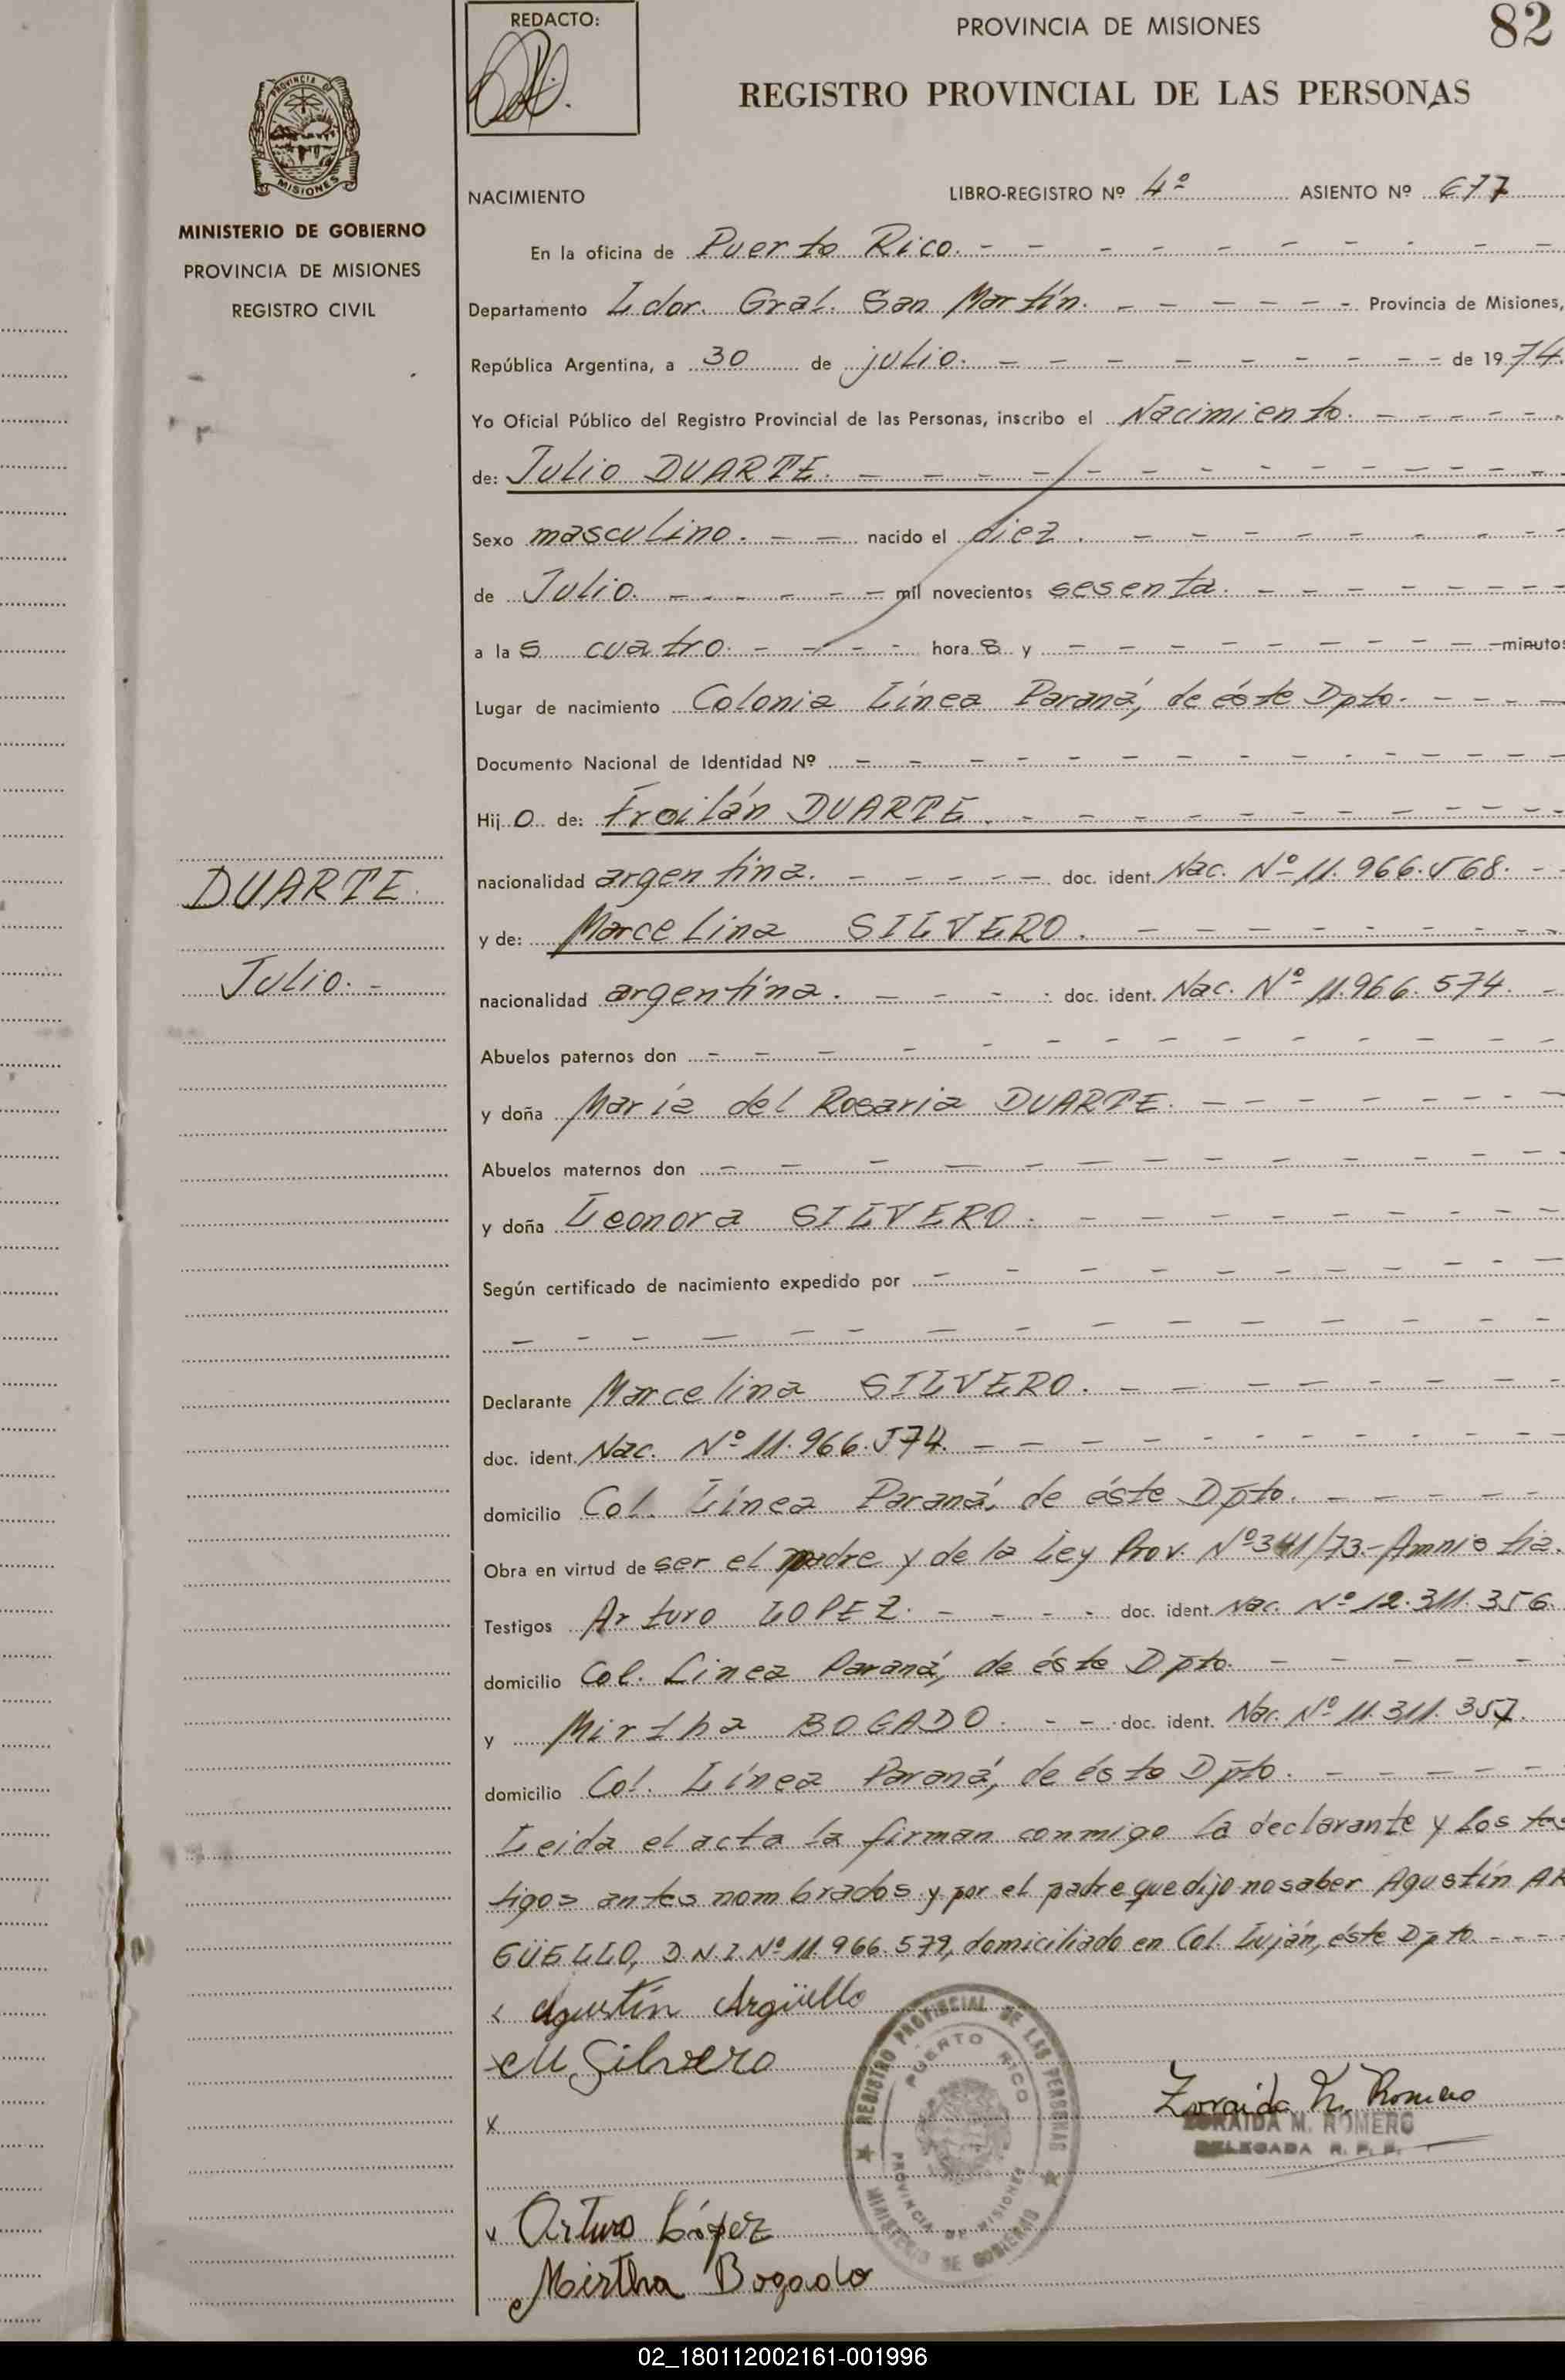 REDACTO:
PROVINCIA DE MISIONES
82
REGISTRO PROVINCIAL DE LAS PERSONAS
PROVINCIA DE
MISIONES
MINISTERIO DE GOBIERNO
PROVINCIA DE MISIONES
REGISTRO CIVIL
NACIMIENTO LIBRO-REGISTRO Nº 4º ASIENTO Nº 677
En la oficina de Puerto Rico.
Departamento Ldor. Gral. San Martín. Provincia de Misiones,
República Argentina, a 30 de julio. de 1974.
Yo Oficial Público del Registro Provincial de las Personas, inscribo el Nacimiento.
de: Julio DUARTE.
Sexo masculino. nacido el diez.
de Julio. mil novecientos sesenta.
a las cuatro. horas y minutos
Lugar de nacimiento Colonia Línea Paraná, de éste Dpto.
Documento Nacional de Identidad Nº
Hijo de: Froilán DUARTE.
nacionalidad argentina. doc. ident. Nac. Nº 11.966.568.
DUARTE.
y de: Marcelina SILVERO.
Julio.-
nacionalidad argentina. doc. ident. Nac. Nº 11.966.574.
Abuelos paternos don
y doña María del Rosaria DUARTE.
Abuelos maternos don
y doña Leonora SILVERO.
Según certificado de nacimiento expedido por
Declarante Marcelina SILVERO.
doc. ident. Nac. Nº 11.966.574.
domicilio Col. Línea Paraná, de éste Dpto.
Obra en virtud de ser el padre y de la Ley Prov. Nº 341/73.-Amnistia.
Testigos Arturo LOPEZ. doc. ident. Nac. Nº 12.311.356.
domicilio Col. Linea Paraná, de éste Dpto.
y Mirtha BOGADO. doc. ident. Nac. Nº 11.311.357.
domicilio Col. Línea Paraná, de ésto Dpto.
Leida el acta la firman conmigo la declarante y los tes
tigos antes nombrados y por el padre que dijo no saber Agustín AR
GÜELLO, D.N.I. Nº 11.966.579, domiciliado en Col. Luján, éste Dpto.
Agustín Argüello
M Silvero
x
REGISTRO PROVINCIAL DE LAS PERSONAS
PUERTO RICO
PROVINCIA DE MISIONES
MINISTERIO DE GOBIERNO
Zoraida M. Romero
ZORAIDA M. ROMERO
DELEGADA R. P. P.
x Arturo López
Mirtha Bogado
02_180112002161-001996